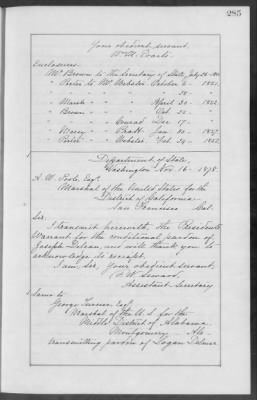 285
Your obedient servant,
Wm. M. Evarts.
Enclosures.
Mr. Brown to the Secretary of State, July
" Porter to Mr. Webster October 2 - 1851.
" " " " " 28 - "
" March " " April 30 - 1852.
" Brown " " Oct. 22 - "
" " " Conrad Dec 17 - "
" Marcy " Jan 30 -
" Porter " Webster Feb 24 - 1852.
Department of State,
Washington Nov. 16 - 1878.
A. W. Poole, Esq.
Marshal of the United States for the
District of California.
San Francisco Cal.
Sir:
I transmit herewith, the President's
Warrant for the conditional pardon of
Joseph and will thank you to
acknowledge its receipt.
I am, Sir, your obedient servant,
F. W. Seward,
Assistant Secretary
Same to
George Turner Esq.
Marshal of the U.S. for the
Middle District of Alabama.
Montgomery - Ala -
transmitting pardon of Logan